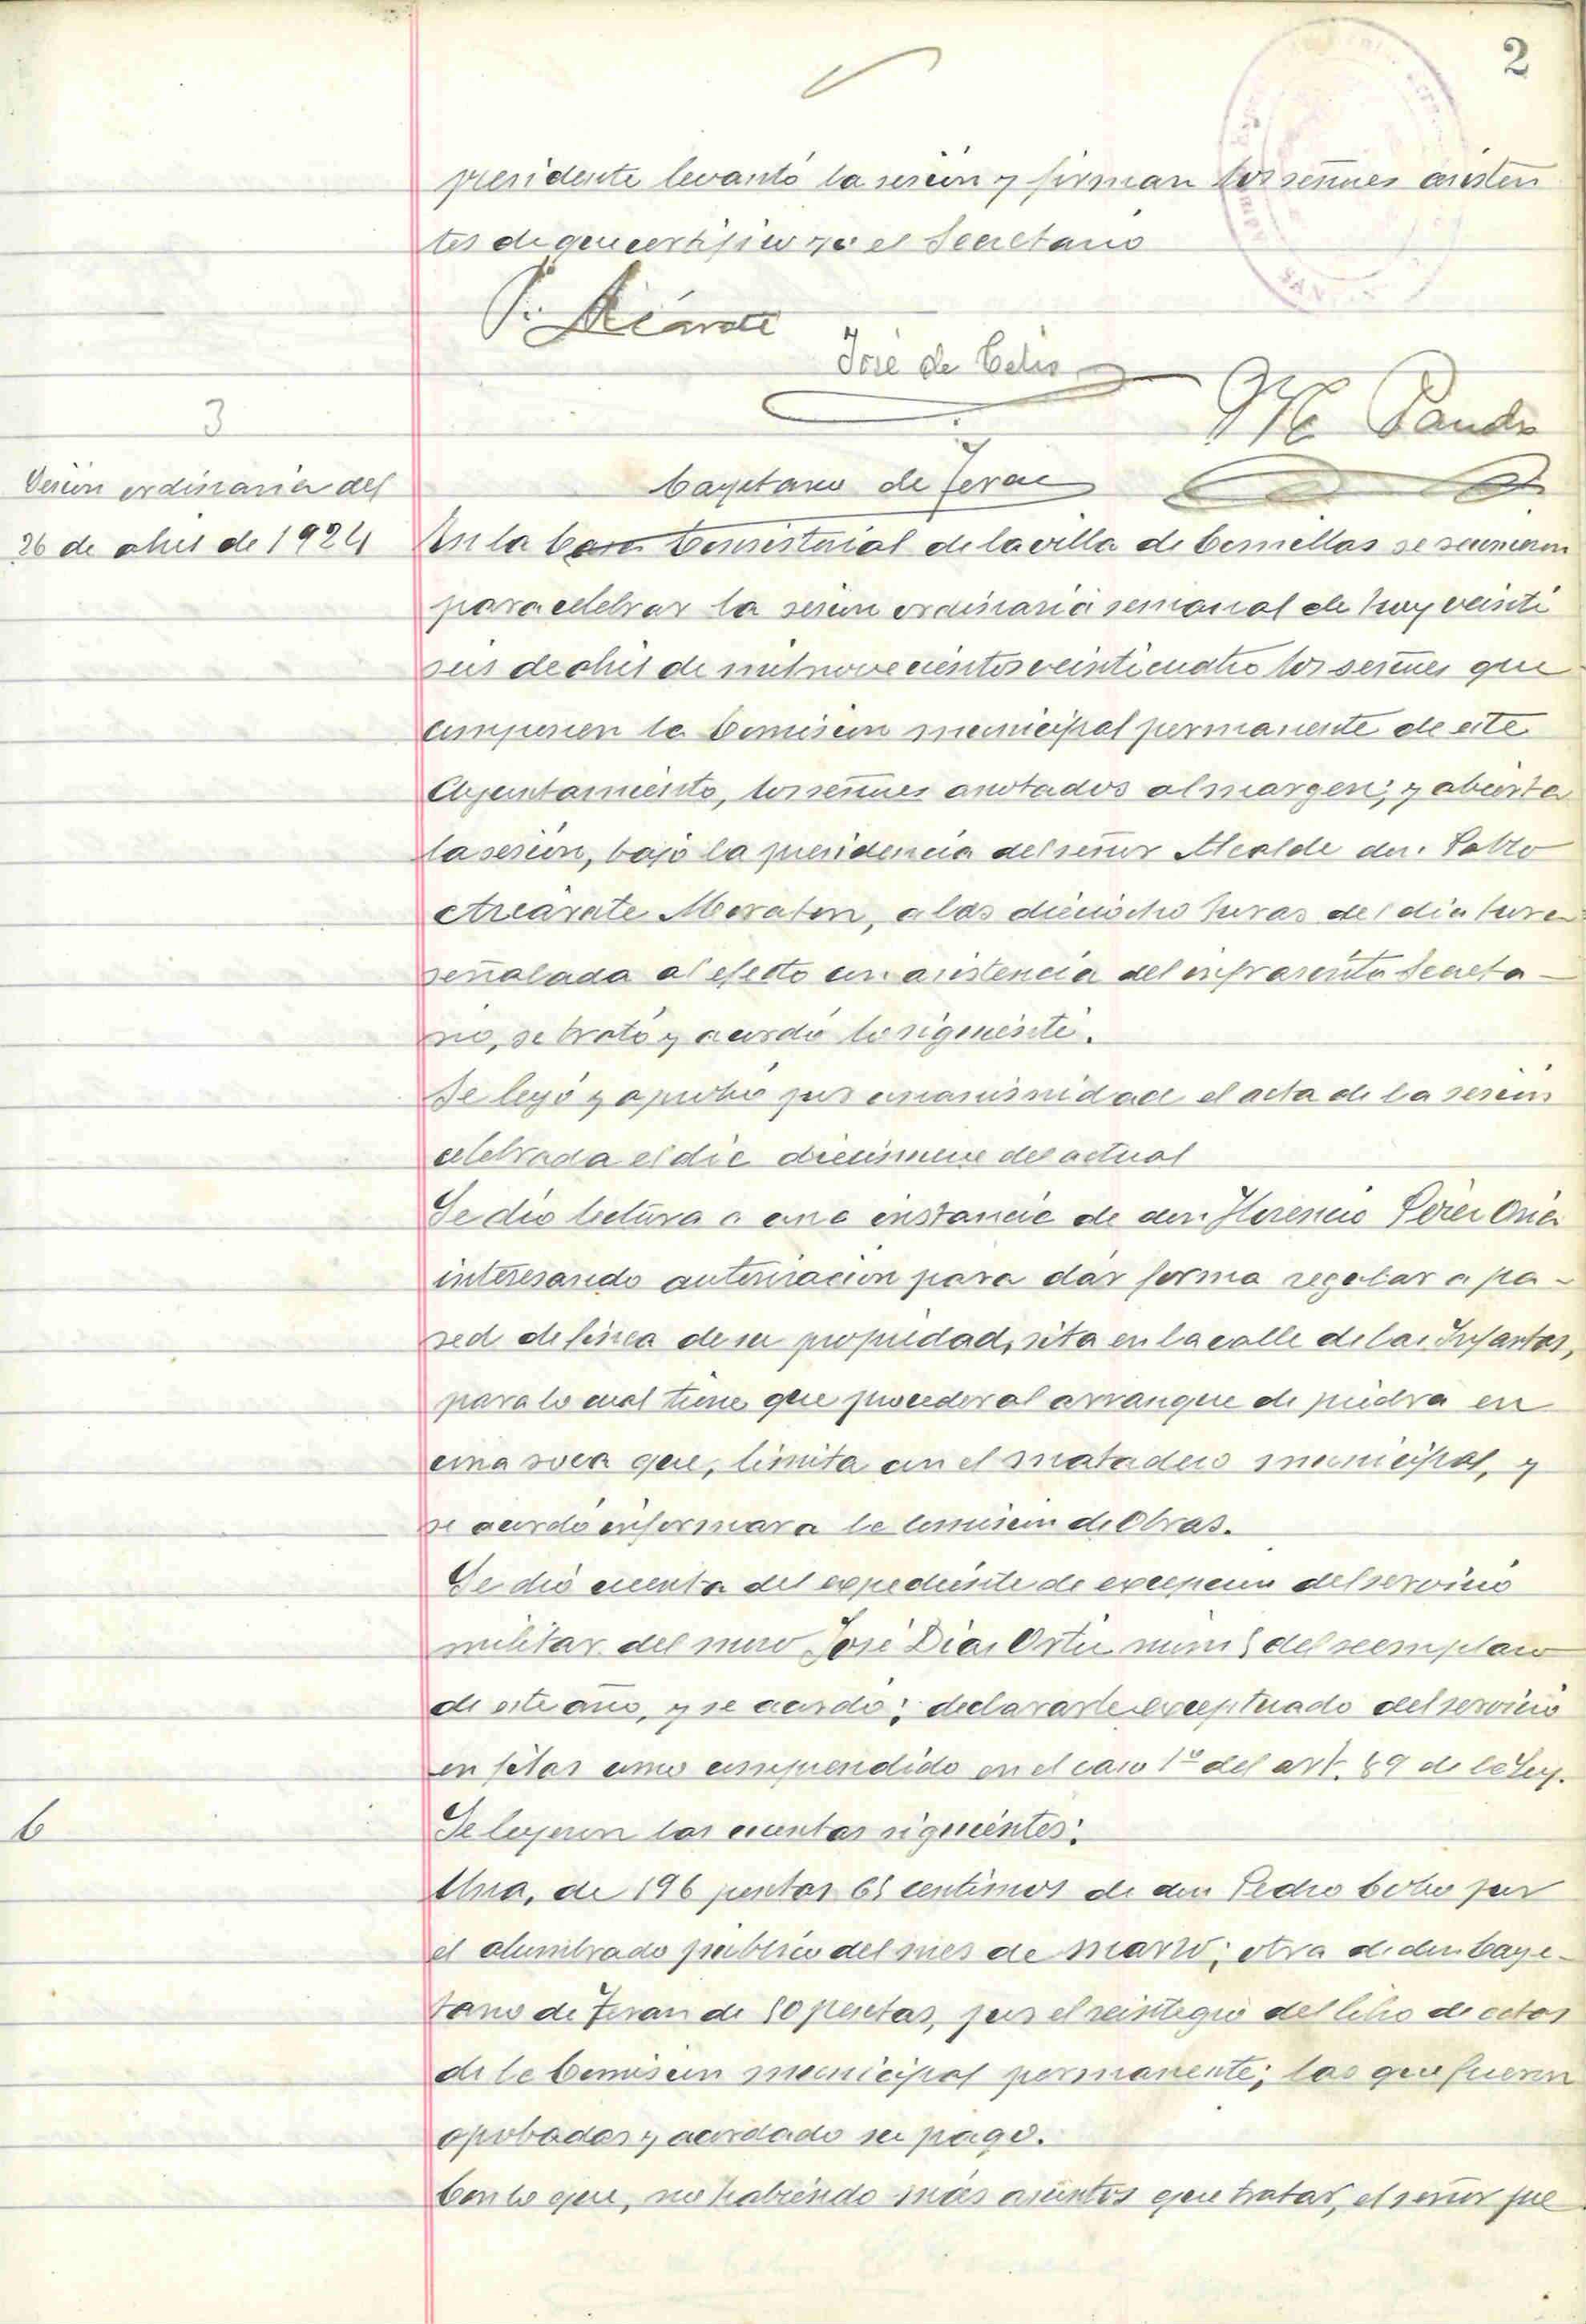 2
presidente levantó la sesion y firman los señores asisten
tes de que certifico yo el Secretario
P. Azcárate
José de Celis
Pando
3
Cayetano de Teran
Sesion ordinaria del
26 de abril de 1924
En la Casa Consistorial de la villa de Comillas se reunieron
para celebrar la sesion ordinaria semanal de hoy veinti
seis de abril de mil novecientos veinticuatro los señores que
componen la Comision municipal permanente de este
Ayuntamiento, los señores anotados al margen; y abierta
la sesion, bajo la presidencia del señor Alcalde don Pablo
Azcárate Moraton, a las dieciocho horas del dia hora
señalada al efecto con asistencia del infrascrito Secreta-
rio, se trató y acordó lo siguiente.
Se leyó y aprobó por unanimidad el acta de la sesion
celebrada el dia diecinueve del actual
Se dió lectura a una instancia de don Florencio Pérez Oria
interesando autorizacion para dár forma regular a pa-
red de finca de su propiedad, sita en la calle de las Infantas,
para lo cual tiene que proceder al arranque de piedra en
una roca que, limita con el matadero municipal, y
se acordó informara la comision de Obras.
Se dió cuenta del expediente de excepcion del servicio
militar del mozo José Diaz Ortiz núm 5 del reemplazo
de este año, y se acordó: declararle exceptuado del servicio
en filas como comprendido en el caso 1º del art. 89 de la Ley.
6
Se leyeron las cuentas siguientes:
Una, de 196 pesetas 65 centimos de don Pedro Cobo por
el alumbrado público del mes de marzo; otra de don Caye-
tano de Teran de 50 pesetas, por el reintegro del libro de actas
de la Comision municipal permanente; las que fueron
aprobadas y acordado su pago.
Con lo que, no habiendo más asuntos que tratar, el señor pre